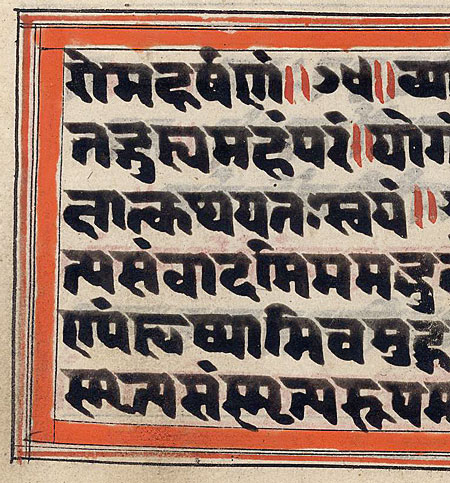 रोमहर्षणं॥७४॥व्या
तद्गुह्यमहंपरं॥योगं
क्षात्कथयतःस्वयं॥
त्यसंवादमिममद्भु
ण्यंहृष्यामिचमुहु
स्मृत्यसंस्मृत्यरूपम